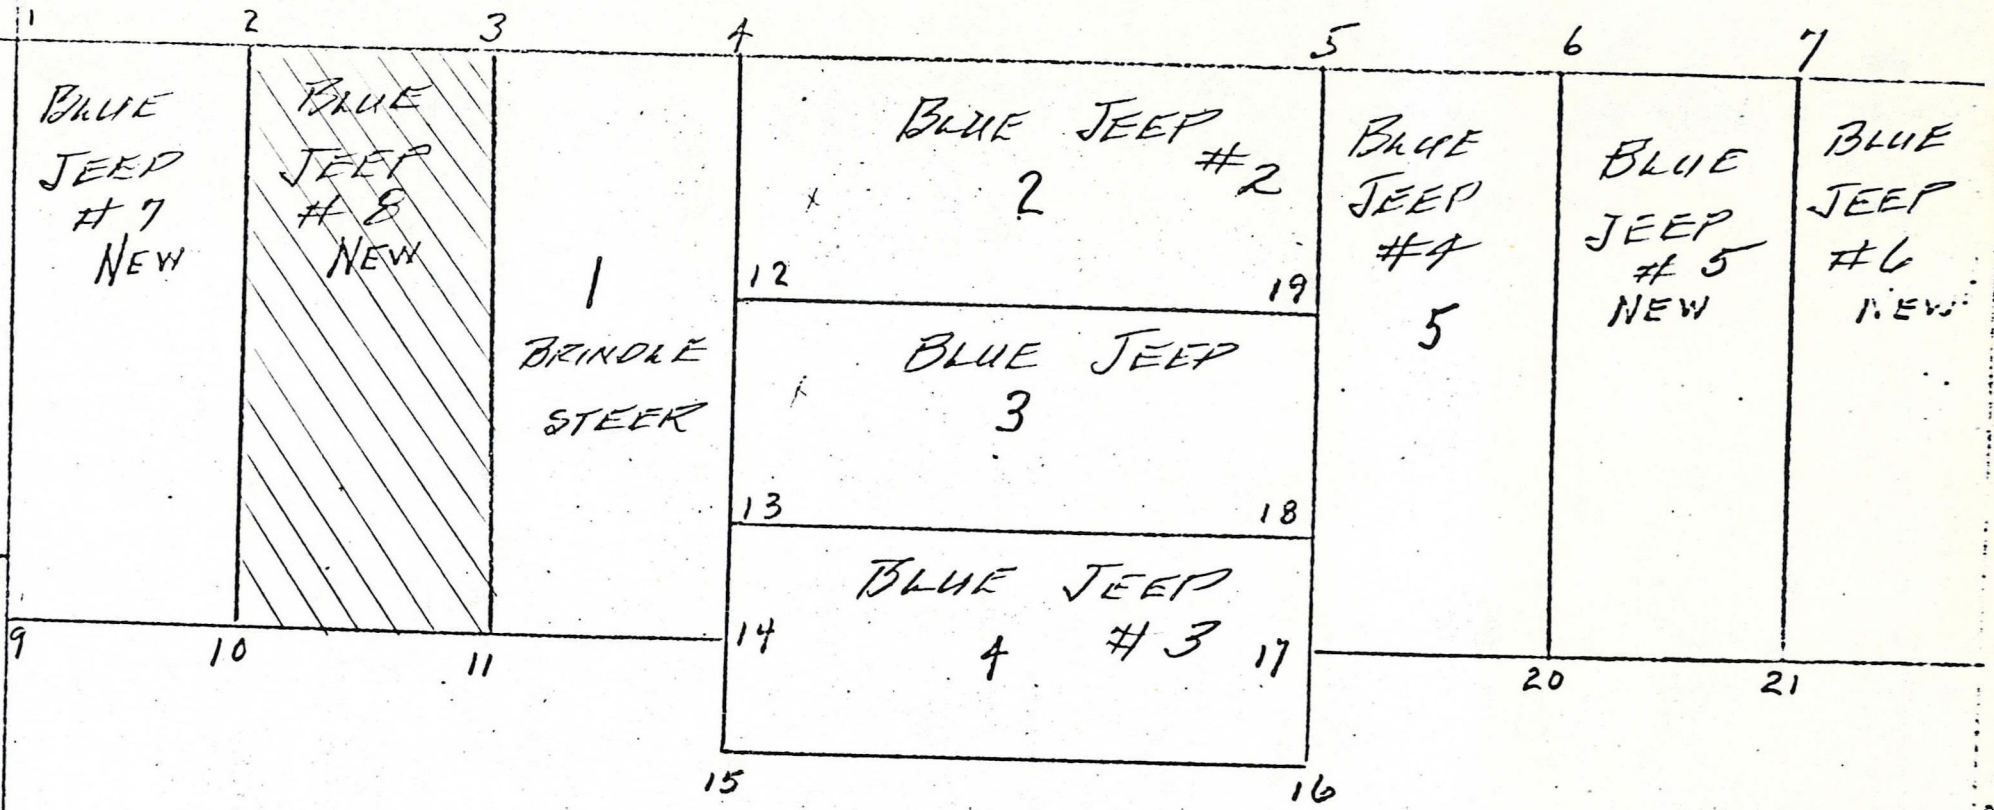 1 2 3 4 5 6 7
BLUE
JEEP
# 7
NEW
BLUE
JEEP
# 8
NEW
1
BRINDLE
STEER
BLUE JEEP
# 2
2
12 19
BLUE JEEP
3
13 18
BLUE JEEP
# 3
4
14 17
15 16
BLUE
JEEP
#4
5
BLUE
JEEP
# 5
NEW
BLUE
JEEP
#6
NEW
9 10 11
20 21